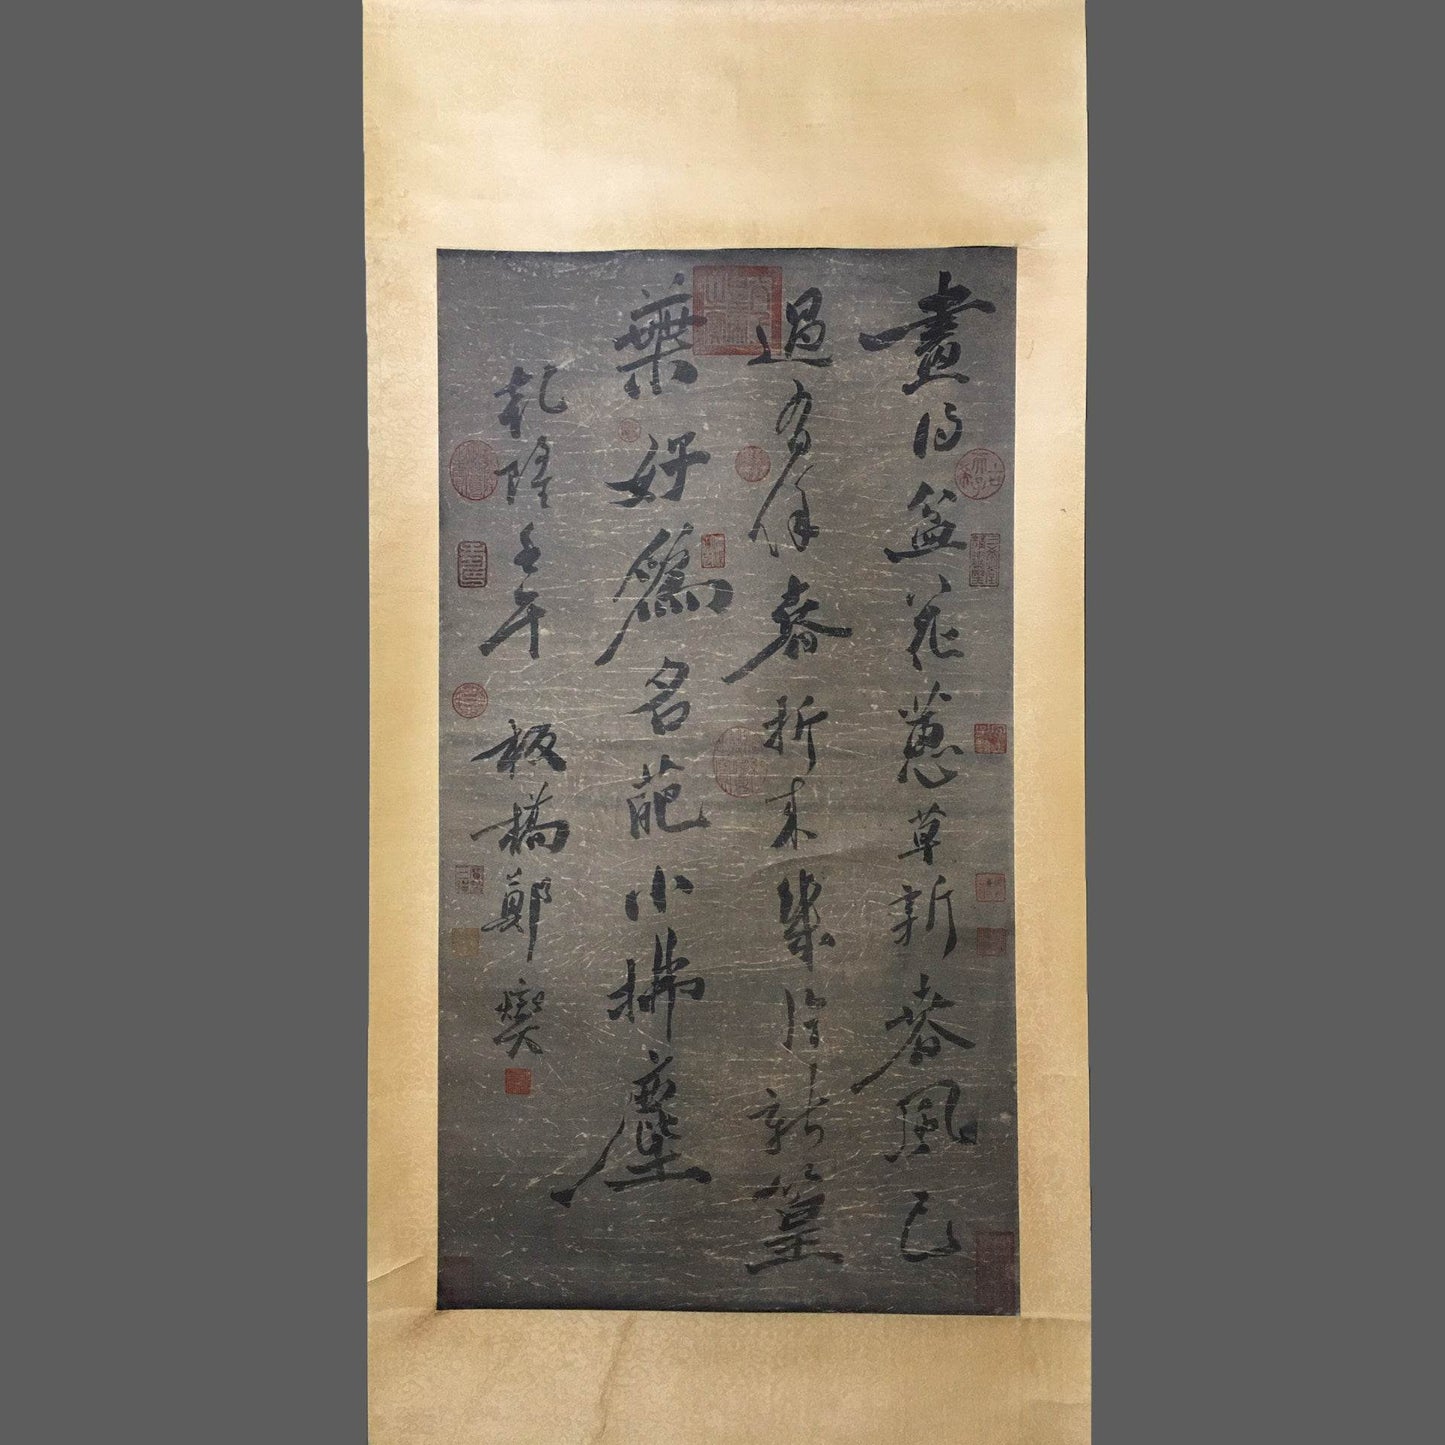 畫得盆花蕙草新春風已
過有餘春折來幾片新篁
葉好爲名葩小拂塵
乾隆壬午 板橋鄭燮